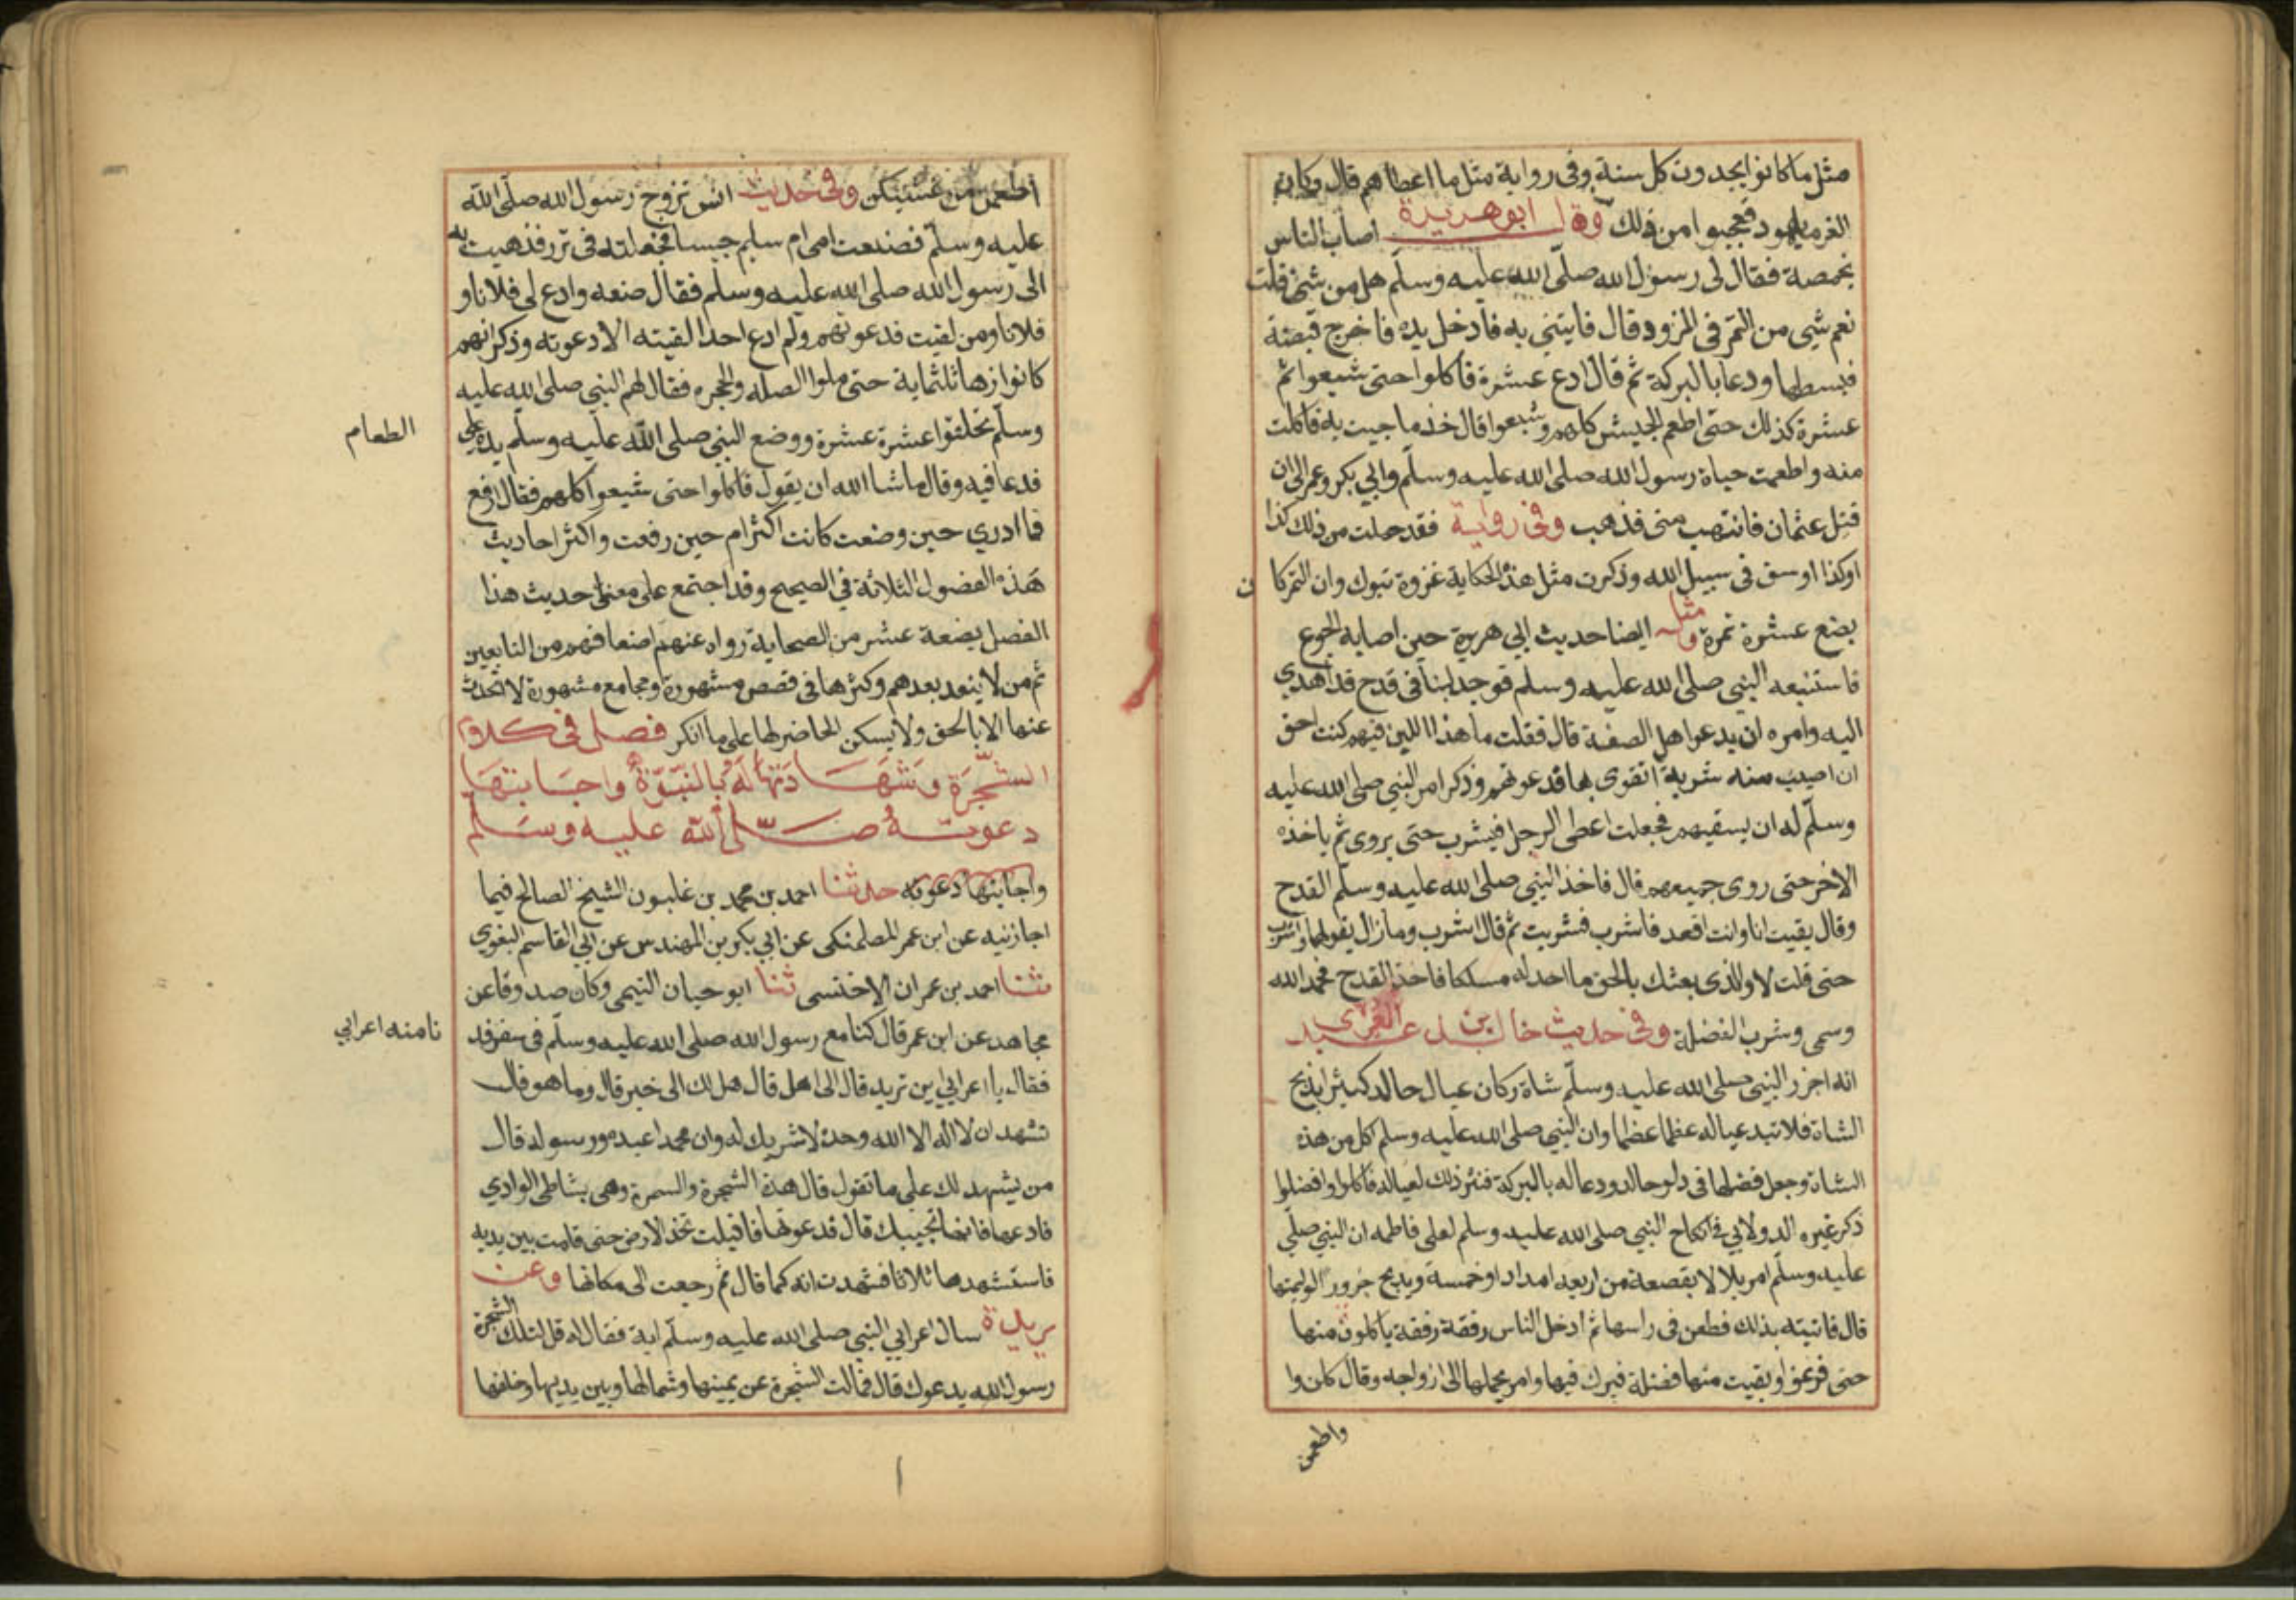 مثل ما كانوا يجدون كل سنة وفى رواية مثل ما اعطاهم قال وكان
الغرما يهود فعجبوا من ذلك وقال ابو هريرة اصاب الناس
مخمصة فقال لى رسول الله صلى الله عليه وسلم هل من شئ قلت
نعم شى من التمر فى المزود قال فايتنى به فادخل يده فاخرج قبضة
فبسطها ودعا بالبركة ثم قال ادع عشرة فاكلوا حتى شبعوا ثم
عشرة كذلك حتى اطعم الجيش كلهم وشبعوا قال خذ ما جيت به فاكلت
منه واطعمت حياة رسول الله صلى الله عليه وسلم وابي بكر وعمر الى ان
قتل عثمان فانتهب منى فذهب وفى رواية فقد حملت من ذلك كذا
اوكذا اوسق فى سبيل الله وذكرت مثل هذه الحكاية غزوة تبوك وان التمر كان
بضع عشرة تمرة ومثله ايضا حديث ابي هريرة حين اصابه الجوع
فاستتبعه النبي صلى الله عليه وسلم فوجد لبنا فى قدح قد اهدي
اليه وامره ان يدعو اهل الصفة قال فقلت ما هذا اللبن فيهم كنت احق
ان اصيب منه شربة اتقوى بها فدعوتهم وذكر امر النبي صلى الله عليه
وسلم له ان يسقيهم فجعلت اعطى الرجل فيشرب حتى يروى ثم ياخذه
الاخر حتى روى جميعهم قال فاخذ النبي صلى الله عليه وسلم القدح
وقال بقيت انا وانت اقعد فاشرب فشربت ثم قال اشرب وما زال يقولها واشرب
حتى قلت لا والذى بعثك بالحق ما اجد له مسلكا فاخذ القدح فحمد الله
وسمى وشرب الفضلة وفى حديث خالد بن عبد العزى
انه اجزر النبي صلى الله عليه وسلم شاة وكان عيال خالد كثيرا يذبح
الشاة فلا تبد عياله عظما عظما وان النبي صلى الله عليه وسلم اكل من هذه
الشاة وجعل فضلها فى دلو خالد ودعا له بالبركة فنثر ذلك لعياله فاكلوا وافضلوا
ذكر غيره الدولابي فى انكاح النبي صلى الله عليه وسلم لعلى فاطمه ان النبي صلى
عليه وسلم امر بلالا بقصعة من اربعه امداد او خمسة ويذبح جزور الوليمتها
قال فاتيته بذلك فطعن فى راسها ثم ادخل الناس رفقة رفقة ياكلون منها
حتى فرغوا وبقيت منها فضلة فبرك فيها وامر بحملها الى ازواجه وقال كلن وا
واطعمن
اطعمن من غشيكن وفى حديث انس تزوج رسول الله صلى الله
عليه وسلم فصنعت امى ام سليم حيسا فجعلته فى تور فذهبت به
الى رسول الله صلى الله عليه وسلم فقال ضعه وادع لى فلانا و
فلانا ومن لقيت فدعوتهم ولم ادع احدا لقيته الا دعوته وذكر انهم
كانوا زها ثلثماية حتى ملوا الصفه والحجره فقال لهم النبي صلى الله عليه
وسلم تحلقوا عشرة عشرة ووضع النبي صلى الله عليه وسلم يده على
الطعام
فدعا فيه وقال ما شا الله ان يقول فاكلوا حتى شبعوا كلهم فقال ارفع
فما ادري حين وضعت كانت اكثر ام حين رفعت واكثر احاديث
هذه الفصول الثلاثة في الصحيح وقد اجتمع على معنى حديث هذا
الفصل بضعة عشر من الصحابة رواه عنهم اضعافهم من التابعين
ثم من لا ينعد بعدهم واكثرها فى قصص مشهورة ومجامع مشهورة لا تحدث
عنها الا بالحق ولا يسكن الحاضر لها على ما انكر فصل فى كلام
الشجرة وشهادتها له بالنبوة واجابتها
دعوته صلى الله عليه وسلم
واجابتها دعوته حدثنا احمد بن محمد بن غلبون الشيخ الصالح فيما
اجازنيه عن ابن عمر الطلمنكى عن ابي بكر بن المهندس عن ابي القاسم البغوى
ثنا احمد بن عمران الاخنسى ثنا ابو حيان التيمى وكان صدوقا عن
مجاهد عن ابن عمر قال كنا مع رسول الله صلى الله عليه وسلم فى سفر فد
نا منه اعرابي
فقال يا اعرابي اين تريد قال الى اهل قال هل لك الى خير قال وما هو قال
تشهد ان لا اله الا الله وحده لا شريك له وان محمدا عبده ورسوله قال
من يشهد لك على ما تقول قال هذه الشجرة والسمرة وهى بشاطى الوادي
فادعها فانها تجيبك قال فدعوتها فاقبلت تخد الارض حتى قامت بين يديه
فاستشهدها ثلاثا فشهدت انه كما قال ثم رجعت الى مكانها وعن
بريدة سال اعرابي النبي صلى الله عليه وسلم اية فقال له قل لتلك الشجرة
رسول الله يدعوك قال فمالت الشجرة عن يمينها وشمالها وبين يديها وخلفها